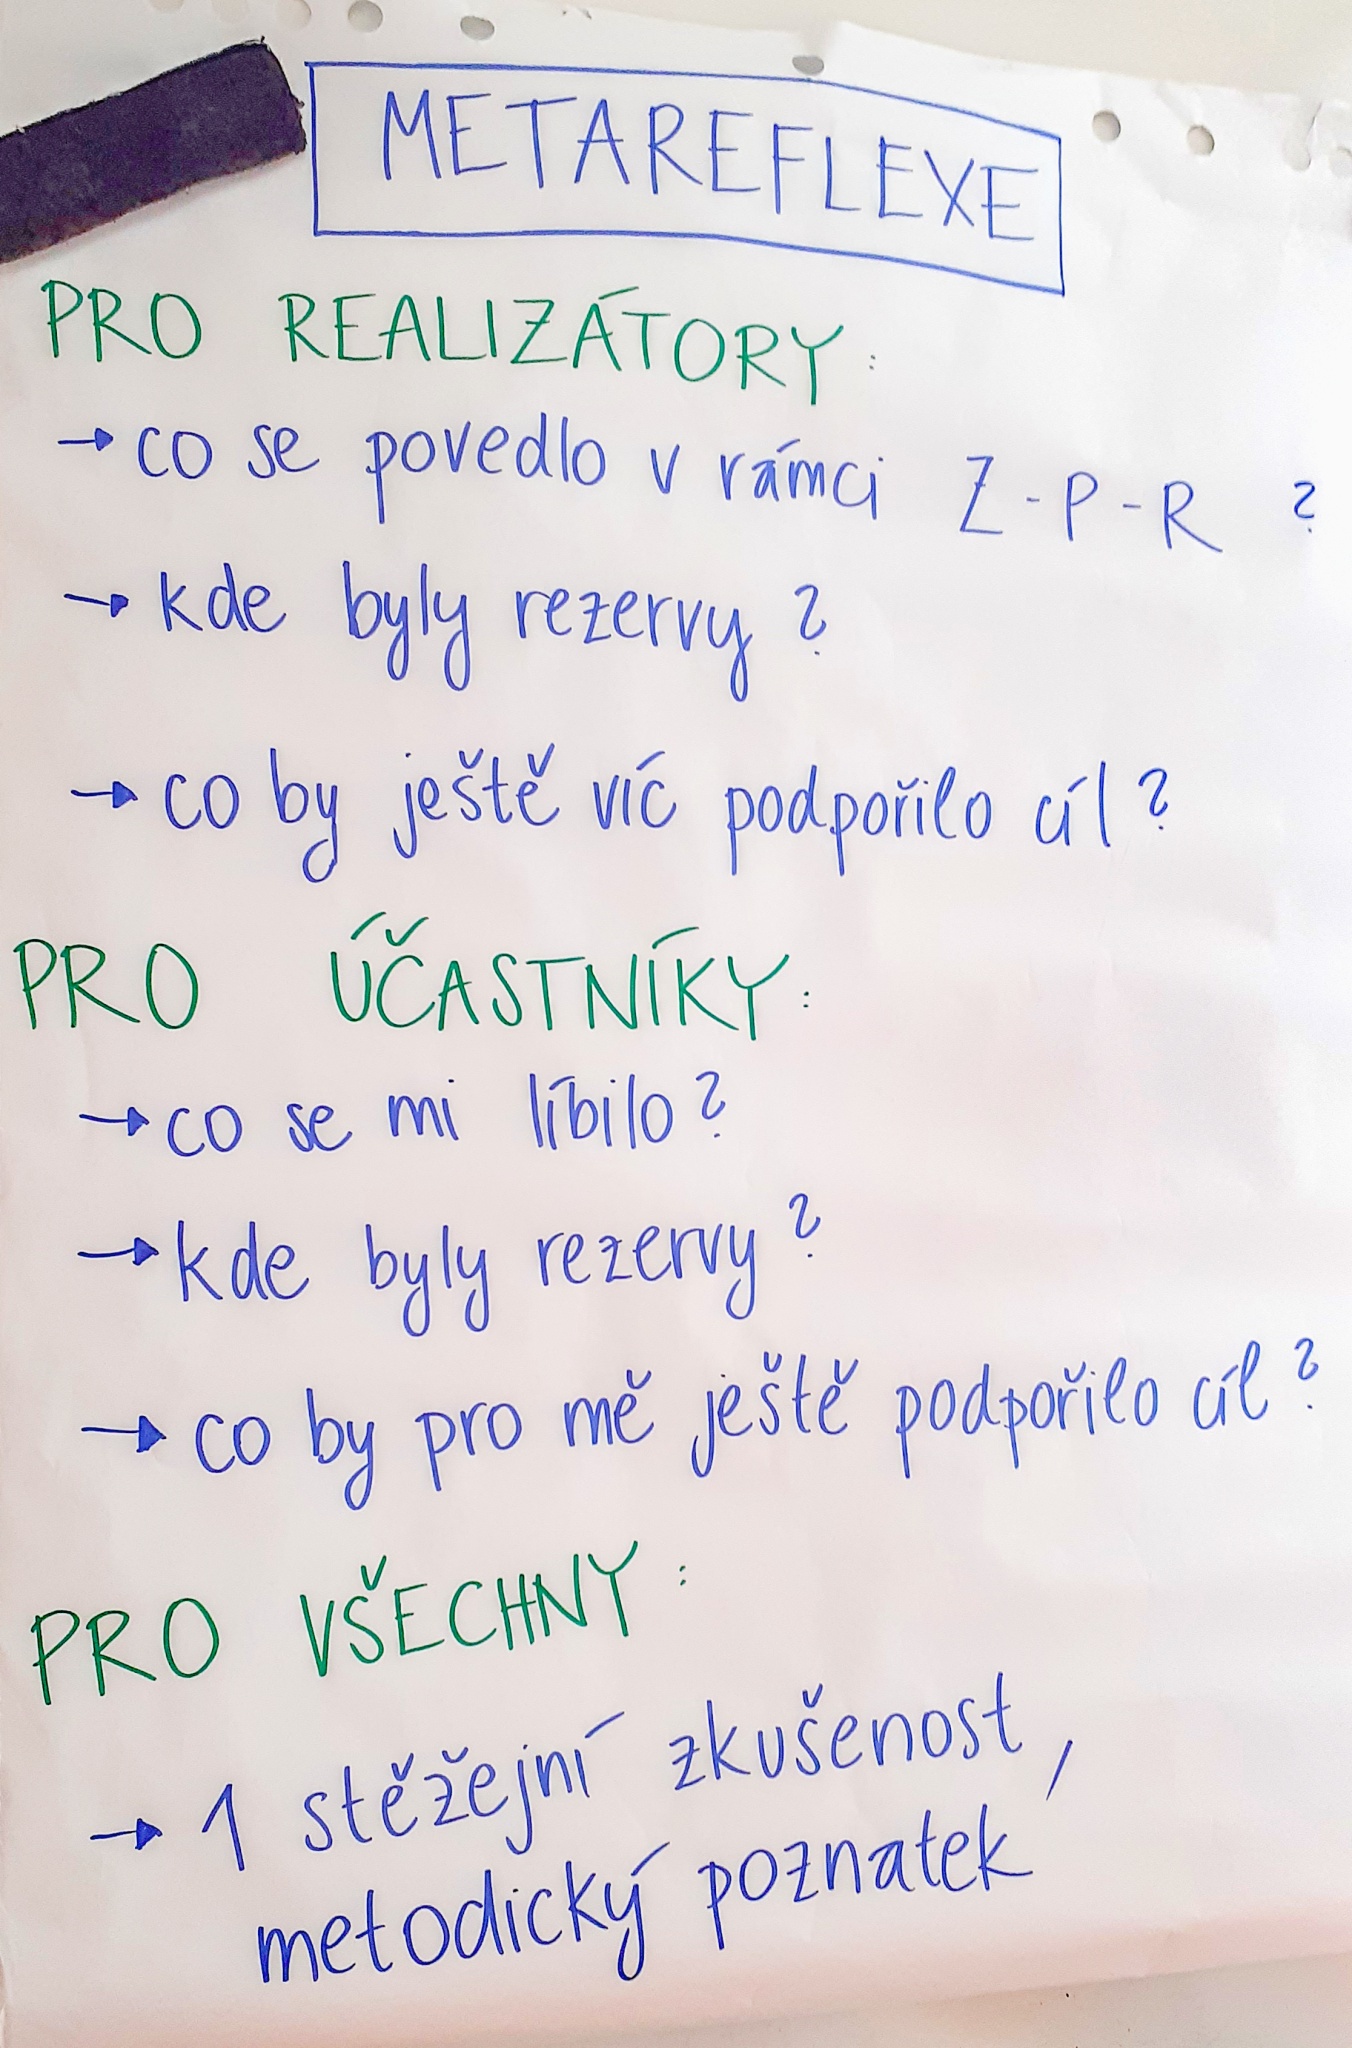 METAREFLEXE
PRO REALIZÁTORY:
→ co se povedlo v rámci Z-P-R ?
→ kde byly rezervy ?
→ co by ještě víc podpořilo cíl ?
PRO ÚČASTNÍKY:
→ co se mi líbilo ?
→ kde byly rezervy ?
→ co by pro mě ještě podpořilo cíl ?
PRO VŠECHNY:
→ 1 stěžejní zkušenost,
metodický poznatek